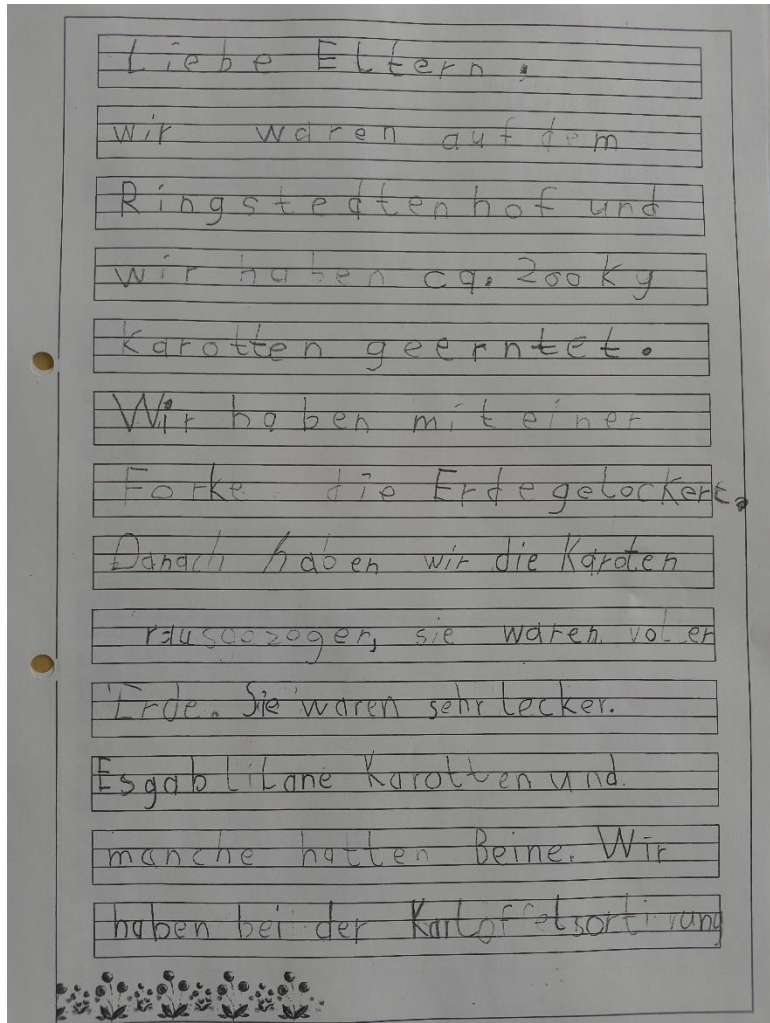 Liebe Eltern,
wir waren auf dem
Ringstedtenhof und
wir haben ca. 200 kg
Karotten geerntet.
Wir haben mit einer
Forke die Erde gelockert.
Danach haben wir die Karoten
rausgezogen, sie waren voller
Erde. Sie waren sehr lecker.
Es gab lilane Karotten und
manche hatten Beine. Wir
haben bei der Kartoffelsortirung